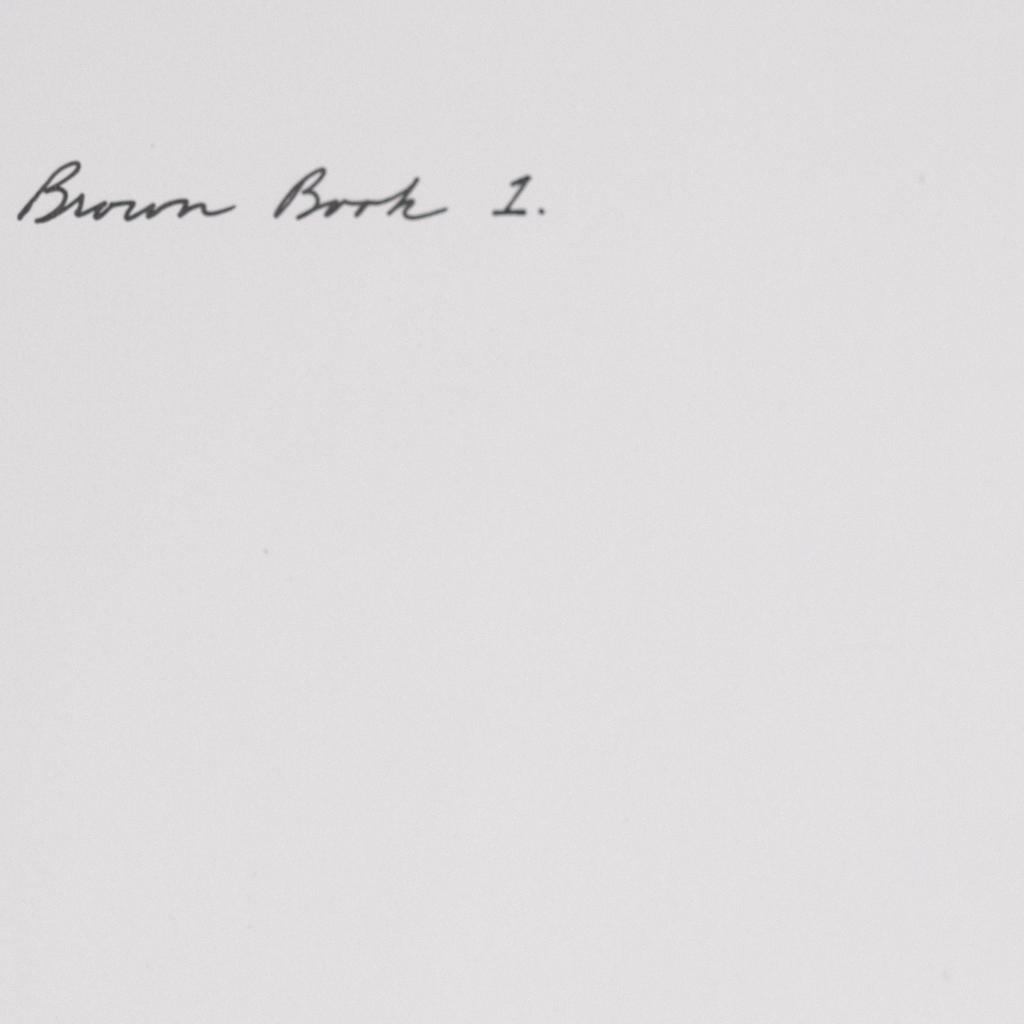 Brown Book 1.